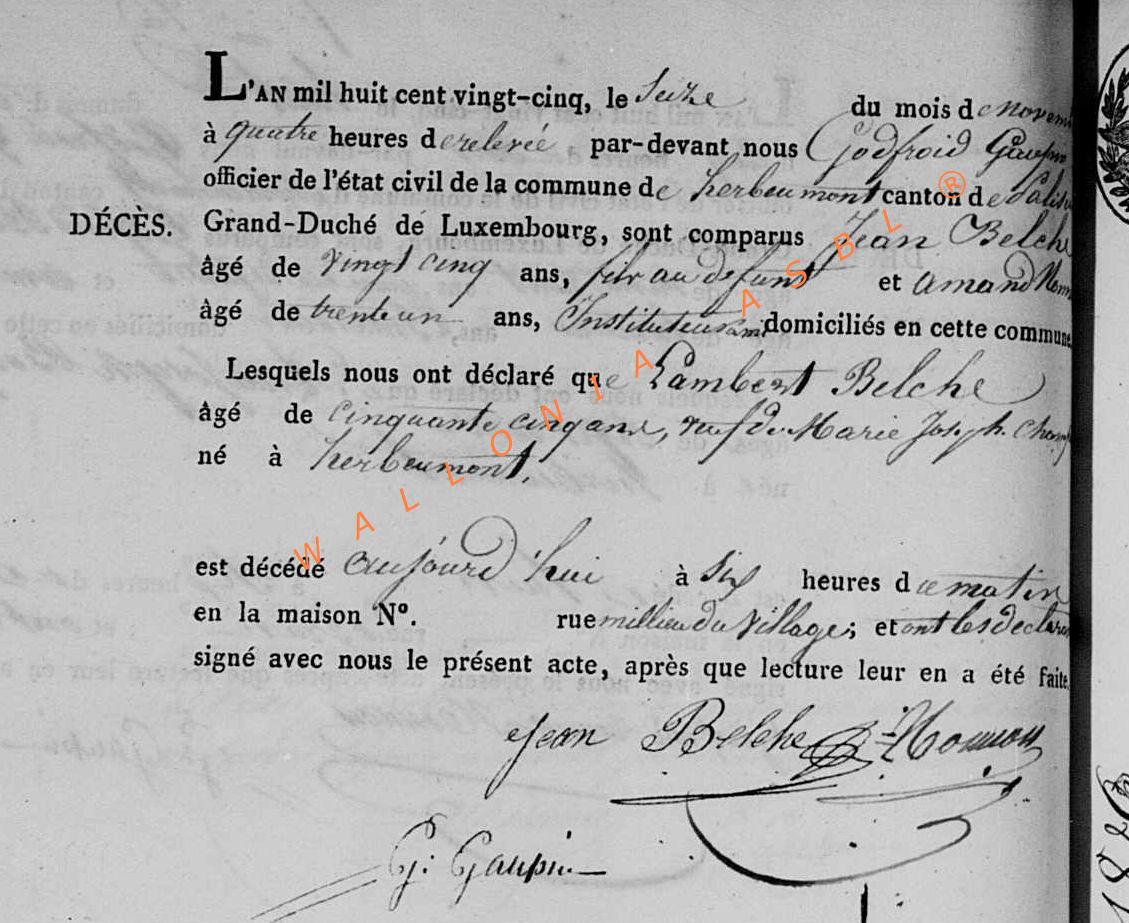 L'AN mil huit cent vingt-cinq, le Seize du mois de novem
à quatre heures de relevée par-devant nous Godfroid Gaupin
officier de l'état civil de la commune de herbeumont canton de Palis
DÉCÈS. Grand-Duché de Luxembourg, sont comparus Jean Belche
âgé de vingt cinq ans, fils au defunt et amand
âgé de trente un ans, Instituteur domiciliés en cette commune
Lesquels nous ont déclaré que Lambert Belche
âgé de cinquante cinq ans, veuf de Marie Joseph
né à herbeumont.
est décédé aujourd'hui à six heures du matin
en la maison N°. rue millieu du village; et ont les declara
signé avec nous le présent acte, après que lecture leur en a été faite.
Jean Belche
G: Gaupin
WALLONIA ASBL ®